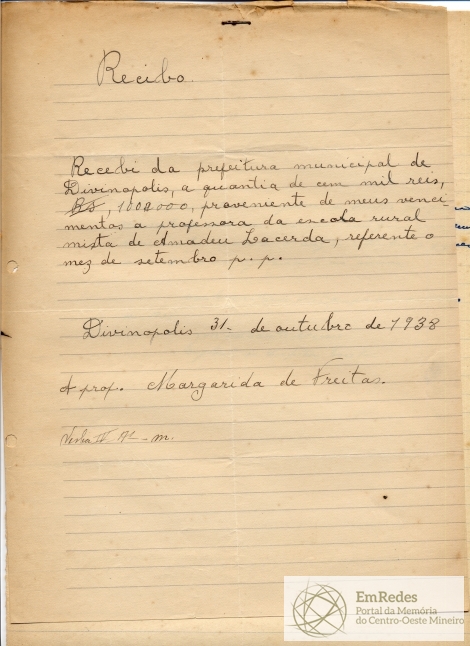 Recibo.
Recebi da prefeitura municipal de
Divinopolis, a quantia de cem mil reis,
100$000, proveniente de meus venci
mentos a professora da escola rural
mista de Amadeu Lacerda, referente o
mez de setembro p. p.
Divinopolis 31- de outubro de 1938
A prop. Margarida de Freitas.
Verba
EmRedes
Portal da Memória
do Centro-Oeste Mineiro